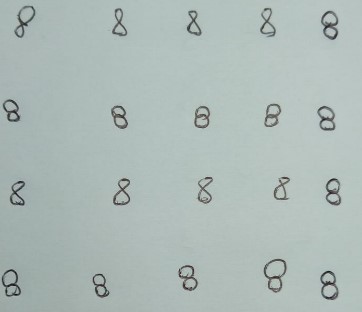 8 8 8 8 8
8 8 8 8 8
8 8 8 8 8
8 8 8 8 8